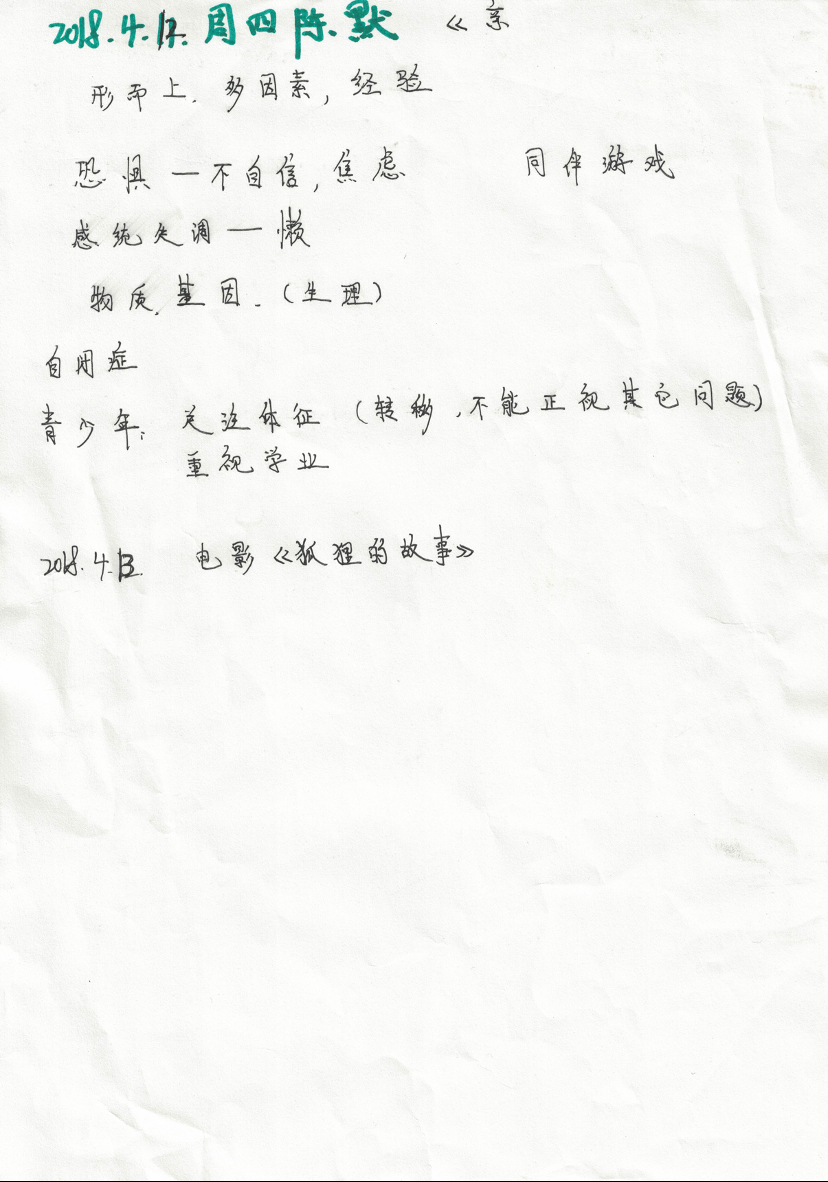 2018.4.12.周四陈默 《亲
形而上.多因素,经验
恐惧—不自信,焦虑 同伴游戏
感统失调—懒
物质.基因.(生理)
自闭症
青少年: 关注体征(转移,不能正视其它问题)
重视学业
2018.4.13. 电影《狐狸的故事》